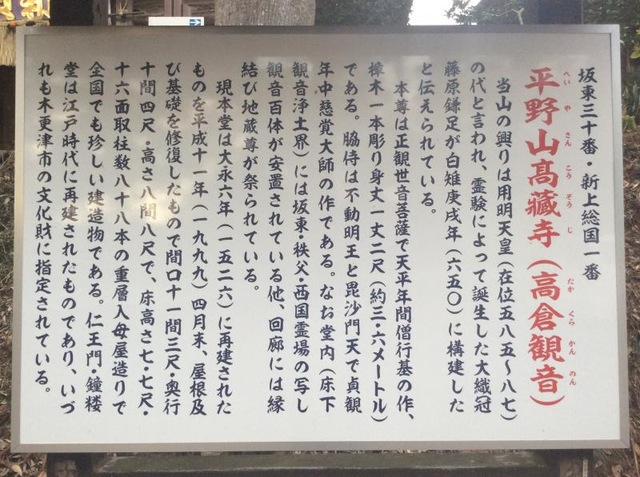 坂東三十番・新上総国一番
平野山高藏寺（高倉観音）
へいやさんこうぞうじ たかくらかんのん
当山の興りは用明天皇（在位五八五～八七）
の代と言われ、霊験によって誕生した大織冠
藤原鎌足が白雉庚戌年（六五〇）に構建した
と伝えられている。
本尊は正観世音菩薩で天平年間僧行基の作、
樟木一本彫り身丈一丈二尺（約三・六メートル）
である。脇侍は不動明王と毘沙門天で貞観
年中慈覚大師の作である。なお堂内（床下
観音浄土界）には坂東・秩父・西国霊場の写し
観音百体が安置されている他、回廊には縁
結び地蔵尊が祭られている。
現本堂は大永六年（一五二六）に再建された
ものを平成十一年（一九九九）四月末、屋根及
び基礎を修復したもので間口十一間三尺・奥行
十間四尺・高さ八間八尺で、床高さ七・七尺・
十六面取柱数八十八本の重層入母屋造りで
全国でも珍しい建造物である。仁王門・鐘楼
堂は江戸時代に再建されたものであり、いづ
れも木更津市の文化財に指定されている。